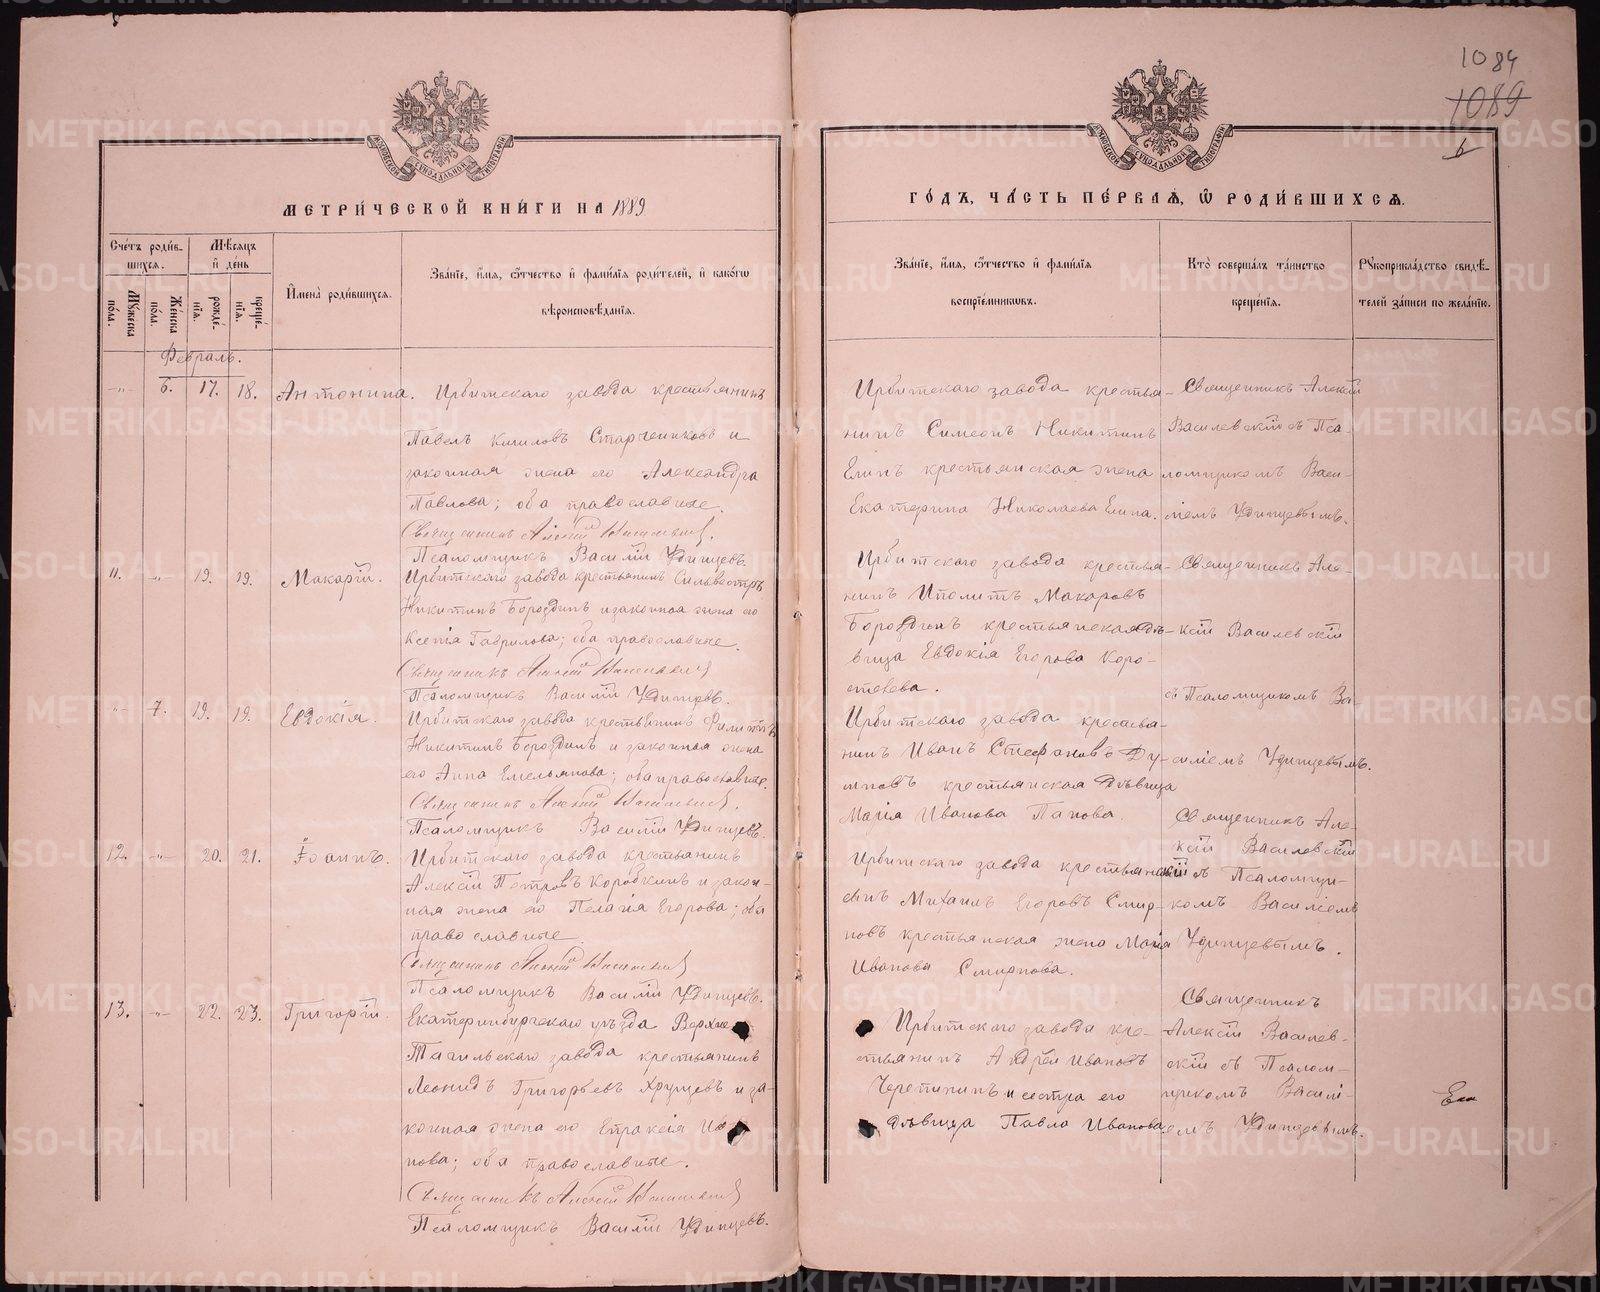 1084
1089
6
МЕТРИ́ЧЕСКОЙ КНИ́ГИ НА 1889
ГО́ДЪ, ЧА́СТЬ ПЕ́РВАѦ, Ѡ РОДИ́ВШИХСѦ.
Сче́тъ роди́в-
шихсѧ.
Мꙋ́жеска по́ла.
Же́нска по́ла.
Мѣ́сѧцъ и҆ де́нь
рожде́-
нїѧ.
креще́-
нїѧ.
И҆мена̀ роди́вшихсѧ.
Зва́нїе, и҆́мѧ, ѻ҆́тчество и҆ фами́лїѧ роди́телей, и҆ како́гѡ
вѣроисповѣ́данїѧ.
Зва́нїе, и҆́мѧ, ѻ҆́тчество и҆ фами́лїѧ
воспрїе́мникѡвъ.
Кто̀ соверша́лъ та́инство
креще́нїѧ.
Рꙋкоприкла́дство свидѣ́-
телей за́писи по жела́нїю.
Февраль.
-"- 6. 17. 18. Антонина.
Ирбитскаго завода крестьянинъ
Павелъ Кириловъ Старченковъ и
законная жена его Александра
Павлова; оба православные.
Священникъ Алексій Василевскій
Псаломщикъ Василій Удинцевъ.
Ирбитскаго завода крестья-
нинъ Симеонъ Никитинъ
Елинъ крестьянская жена
Екатерина Николаева Елина.
Священникъ Алексій
Василевскій съ Пса-
ломщикомъ Васи-
ліемъ Удинцевымъ.
11. -"- 19. 19. Макарій.
Ирбитскаго завода крестьянинъ Сильвестръ
Никитинъ Бороздинъ и законная жена его
Ксенія Гаврилова; оба православные.
Священникъ Алексій Василевскій
Псаломщикъ Василій Удинцевъ.
Ирбитскаго завода крестья-
нинъ Иполитъ Макаровъ
Бороздинъ крестьянская дѣ-
вица Евдокія Егорова Коро-
стелева.
Священникъ Але-
ксій Василевскій
съ Псаломщикомъ Ва-
силіемъ Удинцевымъ.
-"- 7. 19. 19. Евдокія.
Ирбитскаго завода крестьянинъ Филиппъ
Никитинъ Бороздинъ и законная жена
его Анна Емельянова; оба православные.
Священникъ Алексій Василевскій.
Псаломщикъ Василій Удинцевъ.
Ирбитскаго завода крестья-
нинъ Иванъ Стефановъ
крестьянская дѣвица
Марія Иванова Панова.
12. -"- 20. 21. Іоаннъ.
Ирбитскаго завода крестьянинъ
Алексій Петровъ Коробкинъ и закон-
ная жена его Пелагія Егорова; оба
православные
Священникъ Алексій Василевскій
Псаломщикъ Василій Удинцевъ.
Ирбитскаго завода
Михаилъ Егоровъ Смир-
новъ крестьянская жена Марія
Иванова Смирнова.
Священникъ Але-
ксій Василевскій
съ Псаломщи-
комъ Василіемъ
Удинцевымъ.
13. -"- 22. 23. Григорій.
Екатеринбургскаго уѣзда Верхне
Тагильскаго завода крестьянинъ
Леонидъ Григорьевъ Хрущевъ и за-
конная жена его Епраксія Ива
нова; оба православные.
Священникъ Алексій Василевскій
Псаломщикъ Василій Удинцевъ.
Ирбитскаго завода кре-
стьянинъ Андрей Ивановъ
Черепнинъ и сестра его
дѣвица Павла Иванова
Священникъ
Алексій Василев-
скій съ Псалом-
щикомъ Василі-
емъ Удинцевымъ.